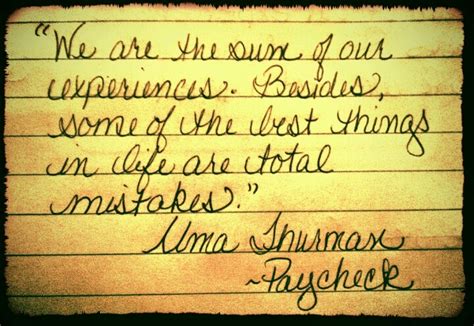 "We are the sum of our
experiences. Besides,
some of the best things
in life are total
mistakes."
Uma Thurman
~Paycheck